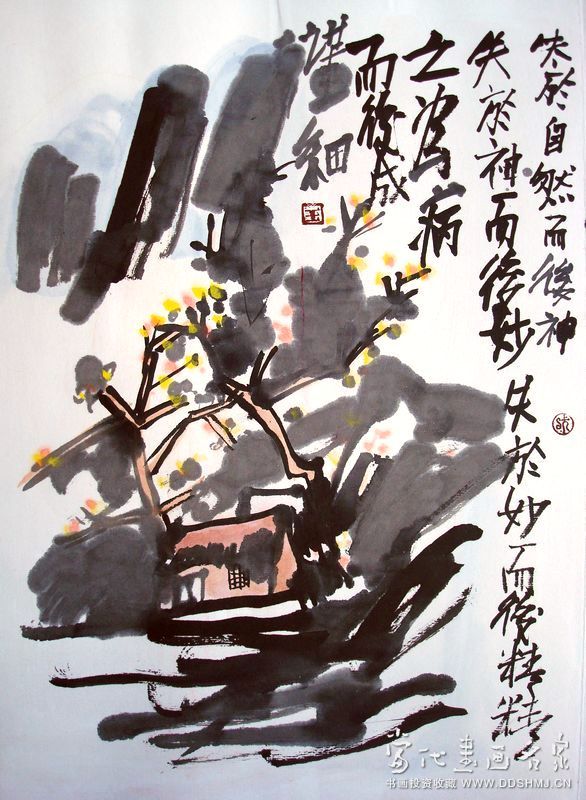 失於自然而後神
失於神而後妙
失於妙而後精精
之為病
而後成
謹細
当代書画名家
书画投资收藏 WWW.DDSHMJ.CN